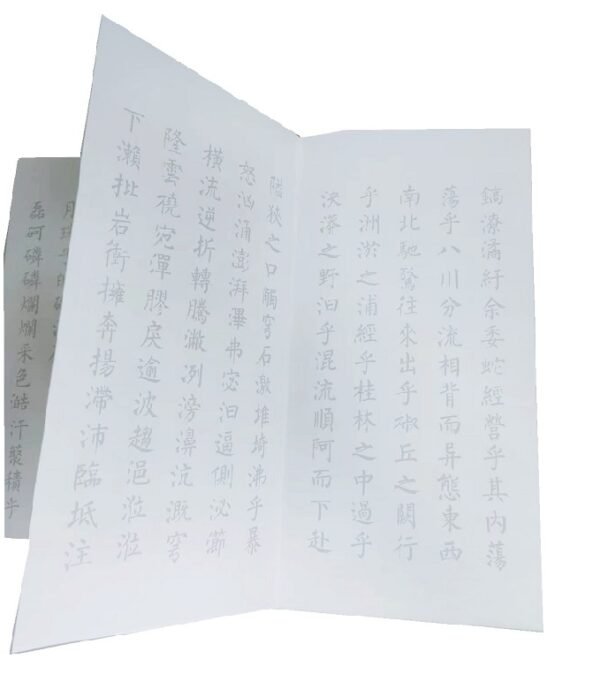 鎬潦潏紆余委蛇經營乎其內蕩
蕩乎八川分流相背而异態東西
南北馳騖往來出乎椒丘之闕行
乎洲淤之浦經乎桂林之中過乎
泱漭之野汩乎混流順阿而下赴
隘狹之口觸穹石激堆埼沸乎暴
怒洶涌澎湃滭弗宓汩逼側泌節
橫流逆折轉騰潎洌滂濞沆溉穹
隆雲橈宛潬膠戾逾波趨浥涖涖
下瀨批岩衝擁奔揚滯沛臨坻注
月珠子的
磊砢磷磷爛爛采色澔汗藂積乎